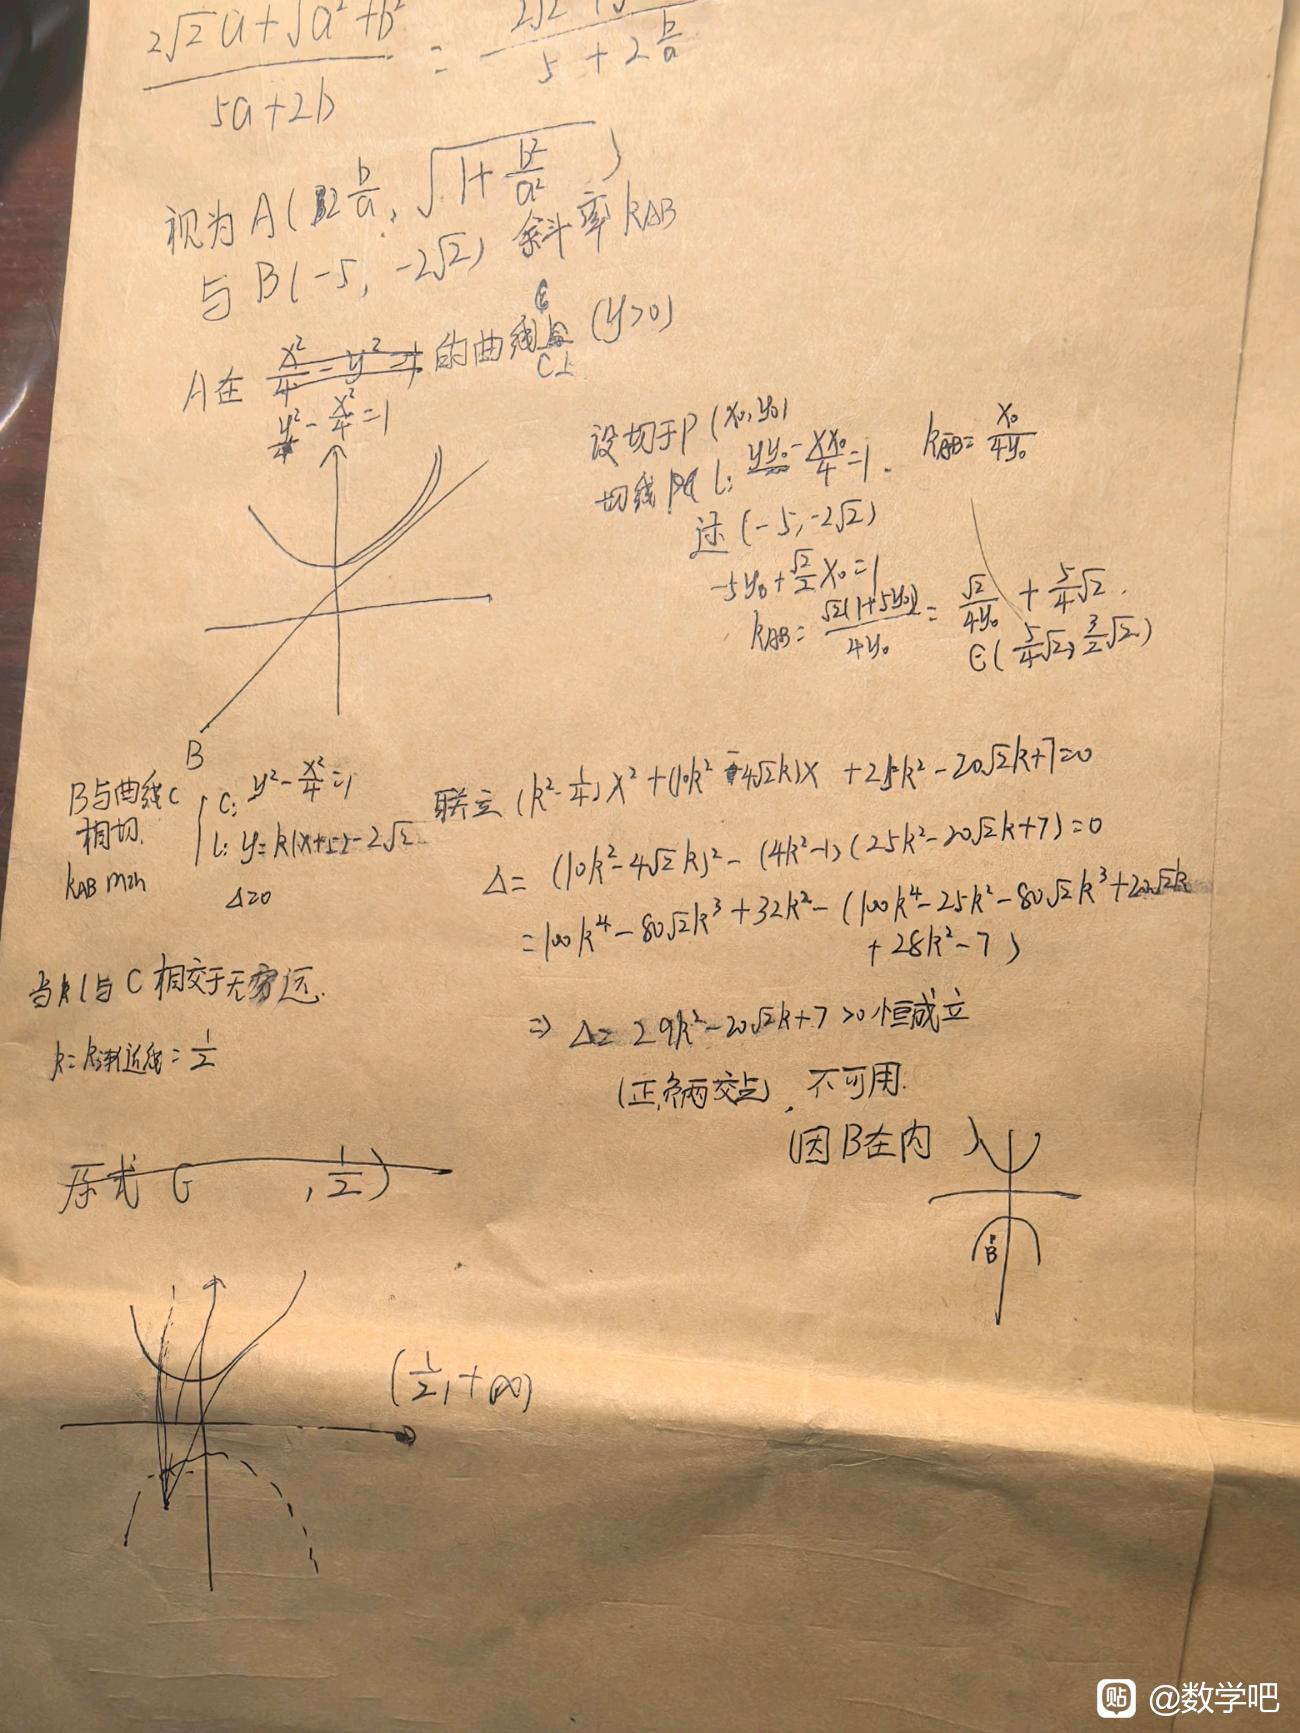 2√2a+√a²+b² / 5a+2b = 2√2 / 5+2 b/a
视为A( 2 b/a, √1+b²/a² )
与B(-5, -2√2) 斜率 kAB
A在 x²/4 - y² = 1 的曲线 C上 (y>0)
y² - x²/4 = 1
设切于P(x₀,y₀)
切线 l: yy₀ - xx₀/4 = 1. kAB = x₀/4y₀
过(-5,-2√2)
-5y₀+√2/2 x₀=1
kAB = √2(1+5y₀)/4y₀ = √2/4y₀ + 5/4√2.
∈(5/4√2, 3/2√2)
B
B与曲线C
相切.
kAB min
C: y² - x²/4 = 1
l: y=k(x+5)-2√2
Δ≥0
联立 (k²-1/4)x²+(10k²-4√2k)x+25k²-20√2k+7=0
Δ= (10k²-4√2k)²-(4k²-1)(25k²-20√2k+7)=0
=100k⁴-80√2k³+32k²-(100k⁴-25k²-80√2k³+20√2k
+28k²-7)
⇒ Δ= 29k²-20√2k+7>0恒成立
(正,负两交点), 不可用.
(因B在内)
B
当 l与C相交于无穷远.
k=k渐近线=1/2
原式 ∈ , 1/2)
(1/2,+∞)
贴 @数学吧